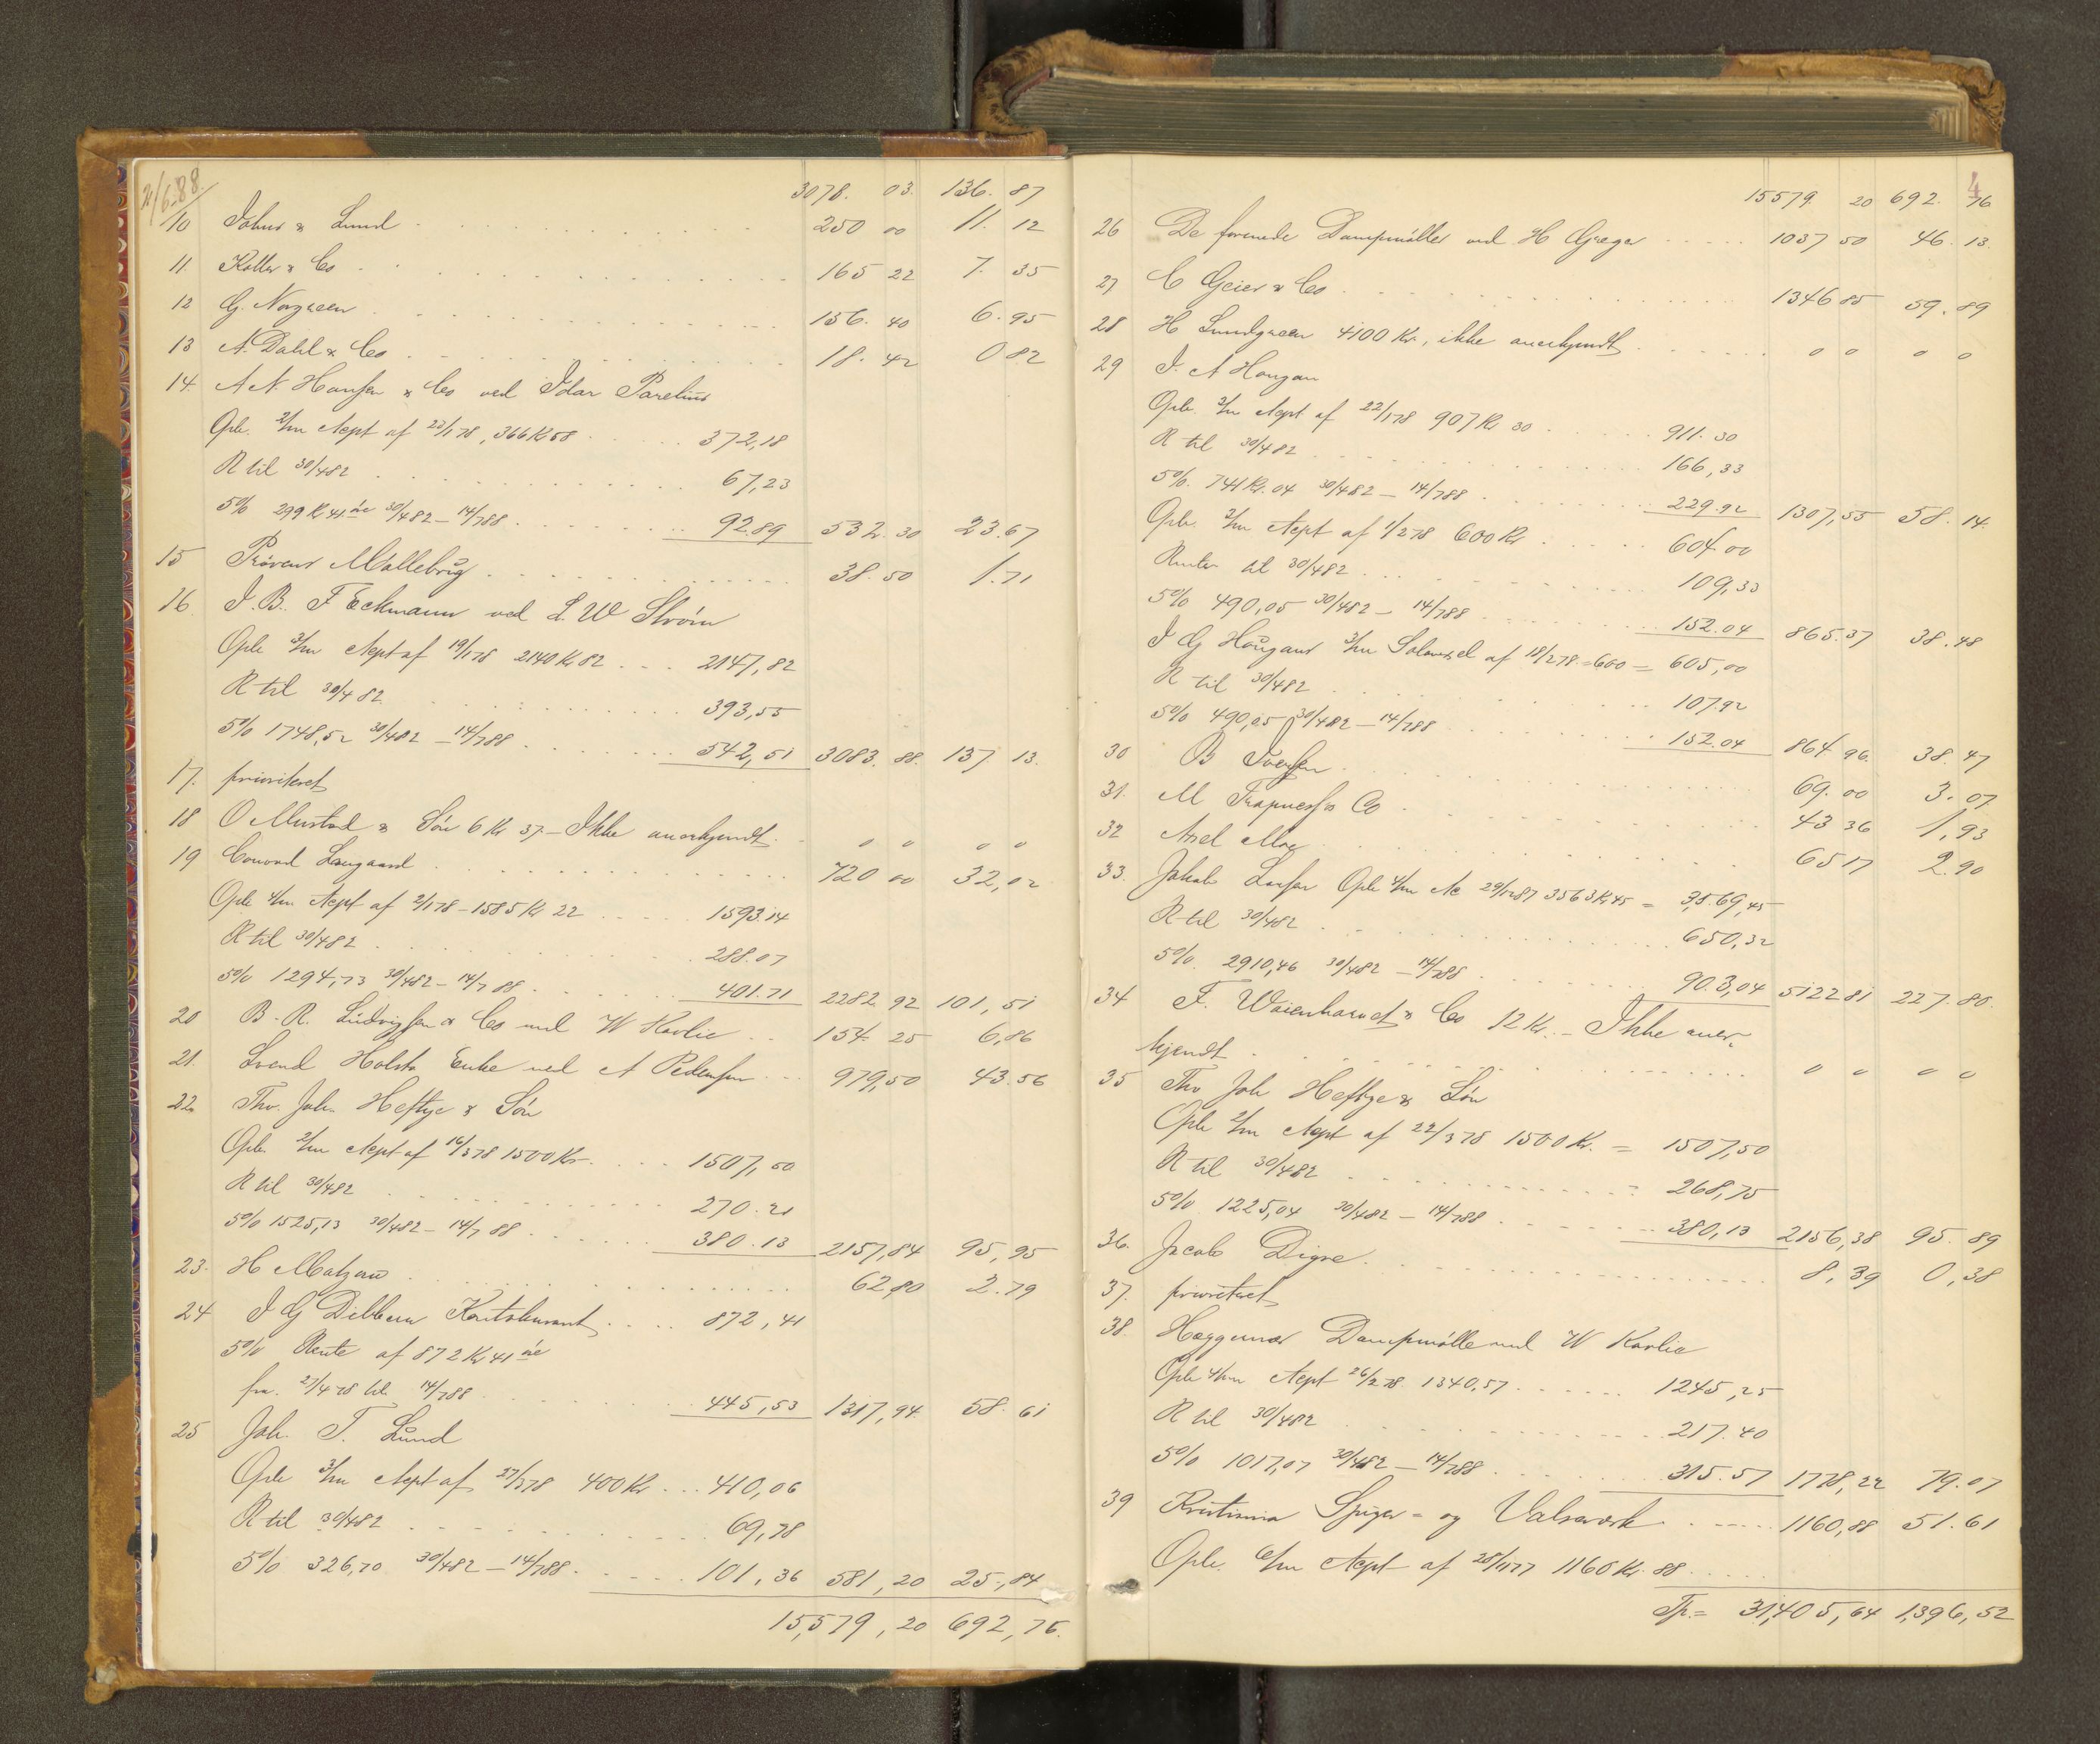 21/6-88.
3078. 03. 136. 87
10 Johns & Lund 250 00 11. 12
11. Koller & Co 165 22 7. 35
12 G. Norgreen 156. 40 6. 95
13 A. Dahl & Co 18. 42 0 82
14. A N. Hansen & Co ved Idar Parelius
Opb. 2/m Acpt af 23/1 78, 366 Kr 58 372,18
R til 30/4 82 67,23
5% 299 Kr 41 øre 30/4 82 – 14/7 88 92.89 532. 30 23.67
15 Prövens Møllebrug 38. 50 1. 71
16. J. B. F Eckmann ved L. W Ström
Opb 3/m Acpt af 19/1 78 2140 Kr 82 2147, 82
R til 30/4 82 393,55
5% 1748,52 30/4 82 – 14/7 88 542, 51 3083. 88. 137. 13.
17. prioriteret
18 O Mustad & Sön 6 Kr 37. – Ikke anerkjendt. " " " "
19 Conrad Langaard 720 00 32,02
Opb 4/m Acpt af 2/1 78 – 1585 Kr 22 1593.14
R til 30/4 82 288.07
5% 1294,73 30/4 82 – 14/7 88 401.71 2282. 92 101, 51
20 B. R. Ludvigsen & Co ved W Kavlie 154. 25 6,86
21. Svend Holsts Enke ved A Pedersen 979,50 43. 56
22. Tho. Joh. Heftye & Sön
Opb. 2/m Acpt af 16/3 78 1500 Kr 1507, 50
R til 30/4 82 270. 21
5% 1525,13 30/4 82 – 14/7 88 380. 13 2157,84 95, 95
23. H Matzau 62,80 2. 79
24 J G Dibbern Kontokurant 872, 41
5% Rente af 872 Kr 41 øre
fra. 27/4 78 til 14/7 88 445,53 1317, 94. 58. 61
25 Joh. T. Lund
Opb 3/m Acpt af 27/3 78 400 Kr 410,06
R til 30/4 82 69,78
5% 326,70 30/4 82 – 14/7 88. 101, 36 581, 20 25,84
15,579, 20 692, 76.
4
15579. 20 692. 76
26 De forenede Dampmöller ved H Græger 1037 50 46. 13.
27 C Geier & Co 1346 85 59. 89
28 H Lundgreen 4100 Kr., ikke anerkjendt " " " "
29 J. A Hougan
Opb. 2/m Acpt af 22/1 78 907 Kr 30 911. 30
R til 30/4 82 166, 33
5% 741 Kr. 04 30/4 82 – 14/7 88 229. 92 1307,55 58. 14.
Opb. 2/m Acpt af 1/2 78 600 Kr 604. 00
Renter til 30/4 82 109,33
5% 490,05 30/4 82 – 14/7 88 152.04 865.37 38. 48
J G Hougans 3/m Solavexel af 18/2 78. = 600 = 605,00
R til 30/4 82 107.92
5% 490,05 30/4 82 – 14/7 88 152.04 864 96. 38. 47
30 B Iversen 69. 00 3. 07
31. M Trapness & Co 43 36 1,93
32 Axel Moe 65 17 2. 90
33. Jakob Larsen Opb 4/m Ac 29/12 87 3563 Kr 45 = 3,569,45
R til 30/4 82 650,32
5% 2910,46 30/4 82 – 14/7 88 903,04 5122 81 227. 80.
34 F. Waienharndt & Co 12 Kr. – Ikke aner-
kjendt " " " "
35 Tho Joh Heftye & Sön
Opb 2/m Acpt af 22/3 78 1500 Kr. = 1507,50
R til 30/4 82 268,75
5% 1225,04 30/4 82 – 14/7 88 380,13 2156,38 95. 89
36. Jacob Digre 8, 39 0,38
37. prioriteret
38. Haggunds Dampmölle ved W Kavlie
Opb 4/m Acpt 26/2 78. 1340,57 1245,25
R til 30/4 82 217. 40
5% 1017,07 30/4 82 – 14/7 88 315.57 1778,22 79.07
39 Kristiania Spiger- og Valseværk 1160,88 51. 61
Opb. 6/m Acpt af 28/11 77 1160 Kr. 88
Tp. = 31,405,64 1,396,52